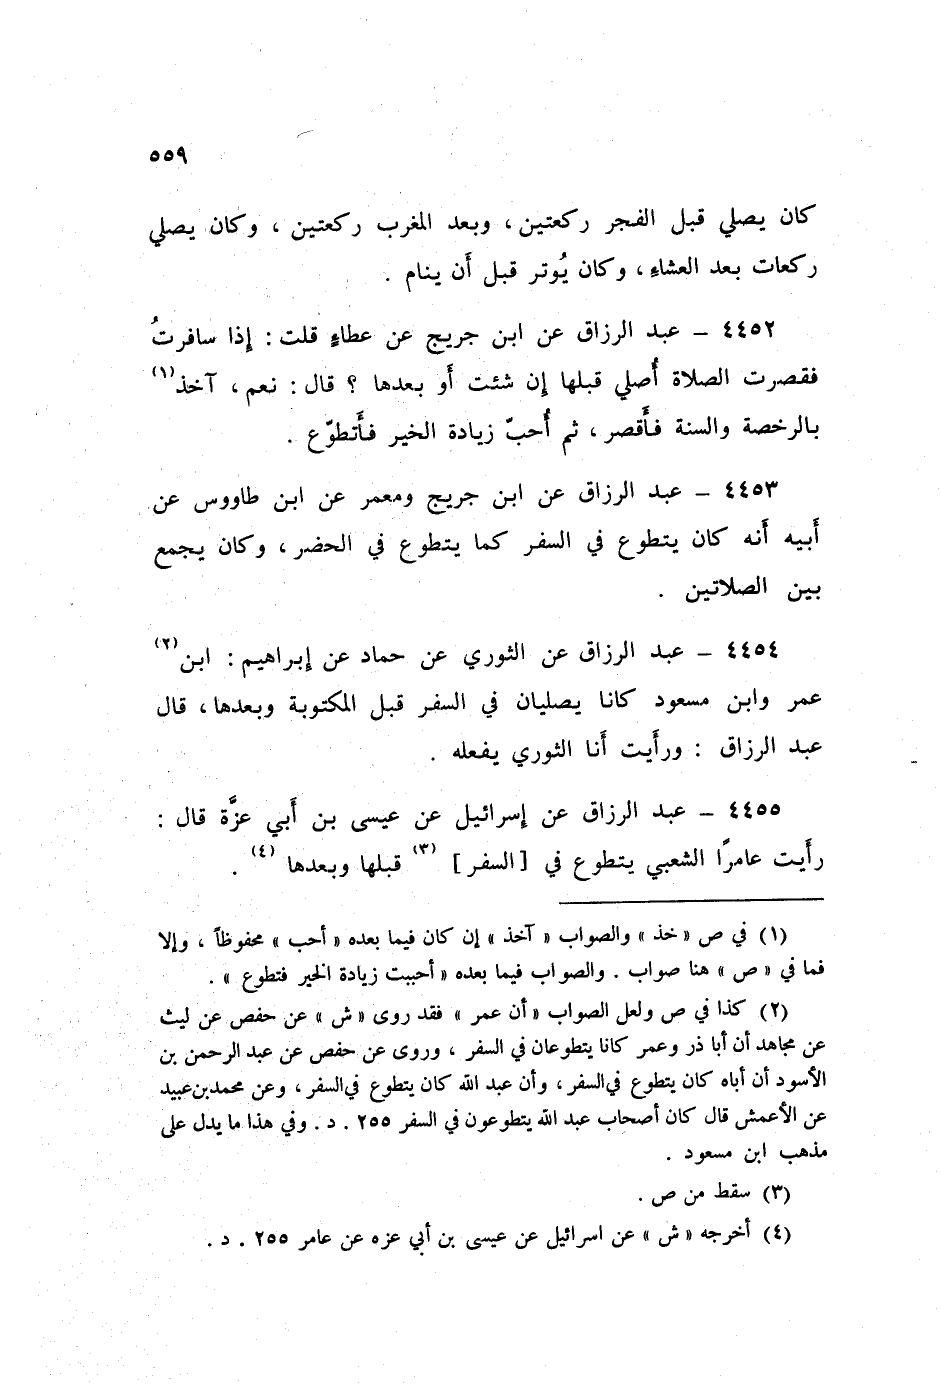 ٥٥٩
كان يصلي قبل الفجر ركعتين ، وبعد المغرب ركعتين ، وكان يصلي
ركعات بعد العشاء ، وكان يُوتر قبل أَن ينام .
٤٤٥٢ – عبد الرزاق عن ابن جريج عن عطاءٍ قلت : إِذا سافرتُ
فقصرت الصلاة أُصلي قبلها إِن شئت أَو بعدها ؟ قال : نعم ، آخذ(١)
بالرخصة والسنة فأَقصر ، ثم أُحبّ زيادة الخير فأَتطوّع .
٤٤٥٣ – عبد الرزاق عن ابن جريج ومعمر عن ابن طاووس عن
أَبيه أَنه كان يتطوع في السفر كما يتطوع في الحضر ، وكان يجمع
بين الصلاتين .
٤٤٥٤ – عبد الرزاق عن الثوري عن حماد عن إِبراهيم : ابن(٢)
عمر وابن مسعود كانا يصليان في السفر قبل المكتوبة وبعدها ، قال
عبد الرزاق : ورأَيت أَنا الثوري يفعله .
٤٤٥٥ – عبد الرزاق عن إِسرائيل عن عيسى بن أَبي عزَّة قال :
رأَيت عامرًا الشعبي يتطوع في [ السفر ] (٣) قبلها وبعدها (٤) .
(١) في ص « خذ » والصواب « آخذ » إن كان فيما بعده « أحب » محفوظاً ، وإلا
فما في « ص » هنا صواب . والصواب فيما بعده « أحببت زيادة الخير فتطوع » .
(٢) كذا في ص ولعل الصواب « أن عمر » فقد روى « ش » عن حفص عن ليث
عن مجاهد أن أبا ذر وعمر كانا يتطوعان في السفر ، وروى عن حفص عن عبد الرحمن بن
الأسود أن أباه كان يتطوع في السفر ، وأن عبد الله كان يتطوع في السفر ، وعن محمد بن عبيد
عن الأعمش قال كان أصحاب عبد الله يتطوعون في السفر ٢٥٥ . د . وفي هذا ما يدل على
مذهب ابن مسعود .
(٣) سقط من ص .
(٤) أخرجه « ش » عن اسرائيل عن عيسى بن أبي عزه عن عامر ٢٥٥ . د .